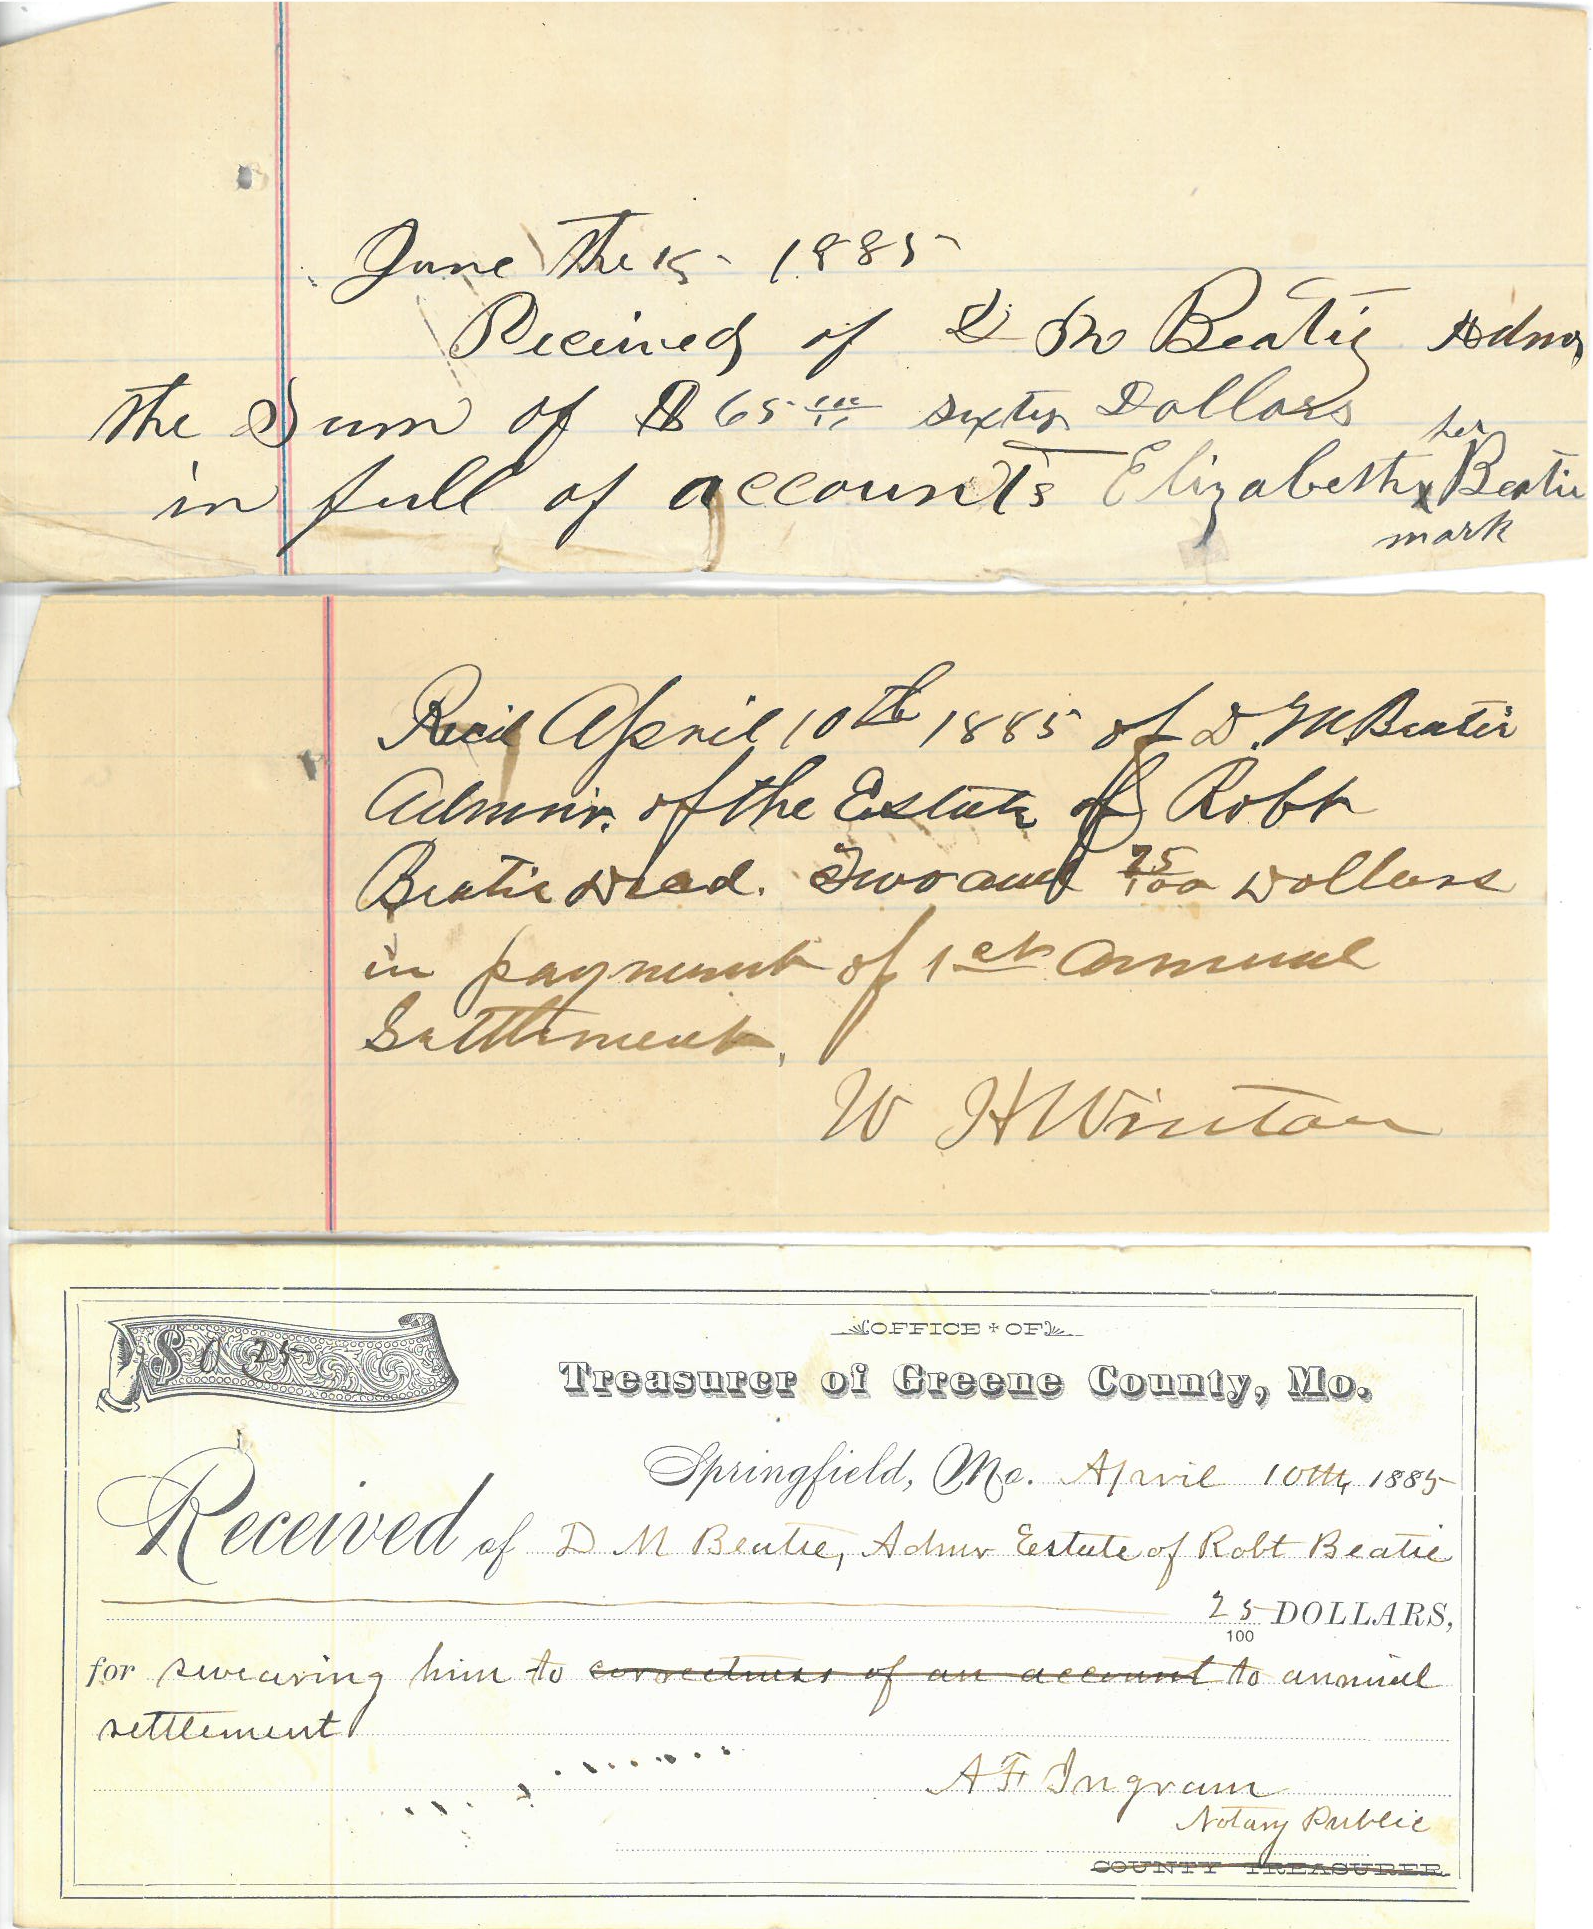 June the 15 1885
Received of D M Beatie Admr
the Sum of $65 sixty Dollars
in full of accounts Elizabeth her x mark Beatie
Recd April 10th 1885 of D. M. Beatie
Adminr. of the Estate of Robt
Beatie Decd. Two and 75/100 Dollars
in payment of 1st Annual
Settlement.
W H Winton
OFFICE OF
$ 0 25
Treasurer of Greene County, Mo.
Springfield, Mo. April 10th, 1885
Received of D M Beatie, Admr Estate of Robt Beatie
25/100 DOLLARS,
for swearing him to correctness of an account to annual
settlement
A F Ingram
Notary Public
COUNTY TREASURER